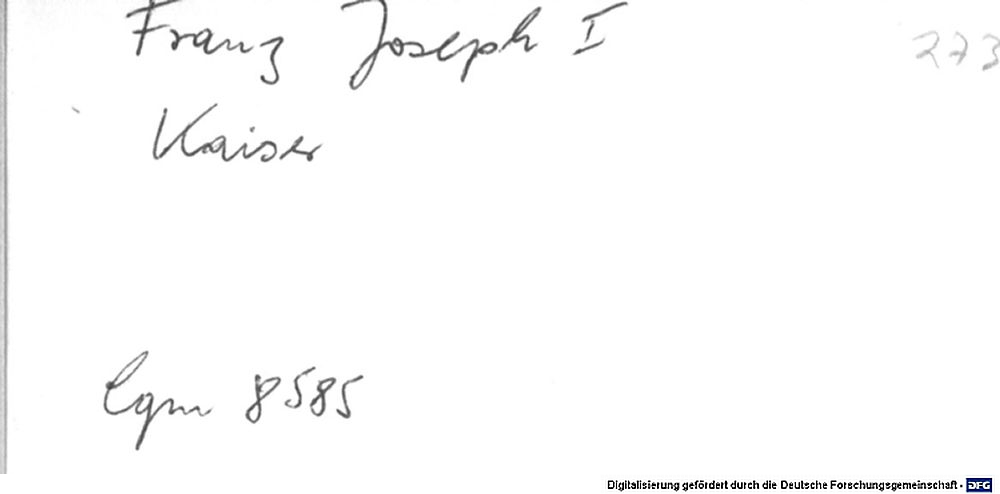 Franz Joseph I
273
Kaiser
Cgm 8585
Digitalisierung gefördert durch die Deutsche Forschungsgemeinschaft - DFG